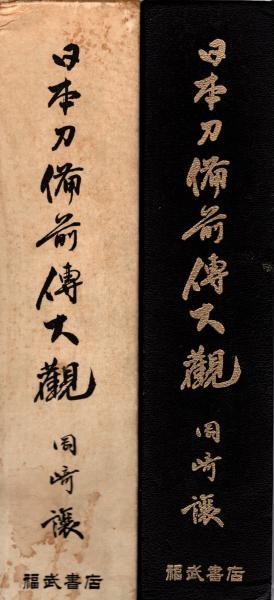 日本刀備前傳大觀
岡崎譲
福武書店
日本刀備前傳大觀
岡崎譲
福武書店